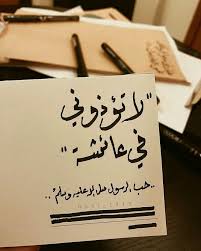 "لا تؤذوني
في عائشة"
..حب الرسول صلى الله عليه وسلم ..